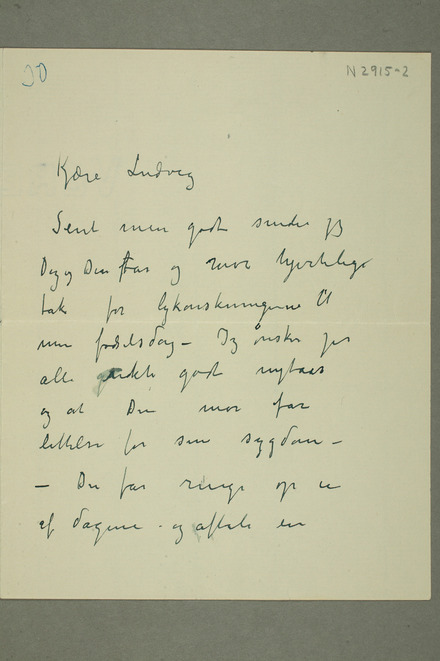 30
N 2915-2
Kjære Ludvig
Sent men godt sender jeg
Dig og Din Far og mor hjertelige
tak for lykønskningerne til
min fødselsdag – Jeg ønsker jer
alle godt nytaar
og at Din mor faar
lettelse for sin sygdom –
– Du faar ringe op en
af dagene og aftale en